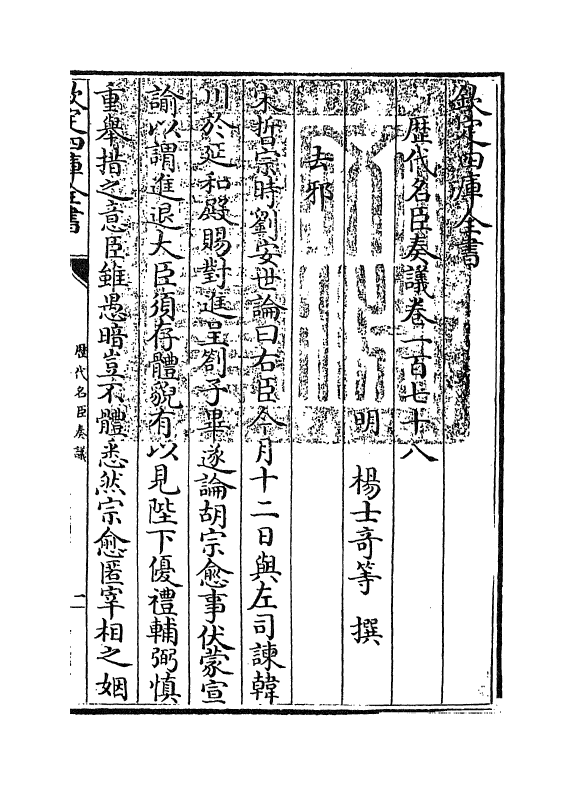 欽定四庫全書
歷代名臣奏議卷一百七十八
明 楊士竒等 撰
去邪
宋哲宗時劉安世論曰右臣今月十二日與左司諫韓
川於延和殿賜對進呈劄子畢遂論胡宗愈事伏蒙宣
諭以謂進退大臣須存體貌有以見陛下優禮輔弼慎
重舉措之意臣雖愚暗豈不體悉然宗愈匿宰相之姻
欽定四庫全書
歷代名臣奏議